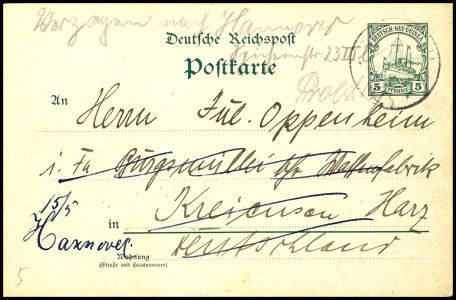 Verzogen nach Hannover
23 III
Deutsche Reichspost
Postkarte
DEUTSCH-NEU-GUINEA
5 PFENNIG 5
An Herrn Jul. Oppenheim
i. Fa Burgsmüller Waffenfabrik
15/5
in Kreiensen Harz
Hannover
Deutschland
Wohnung
(Straße und Hausnummer)
5